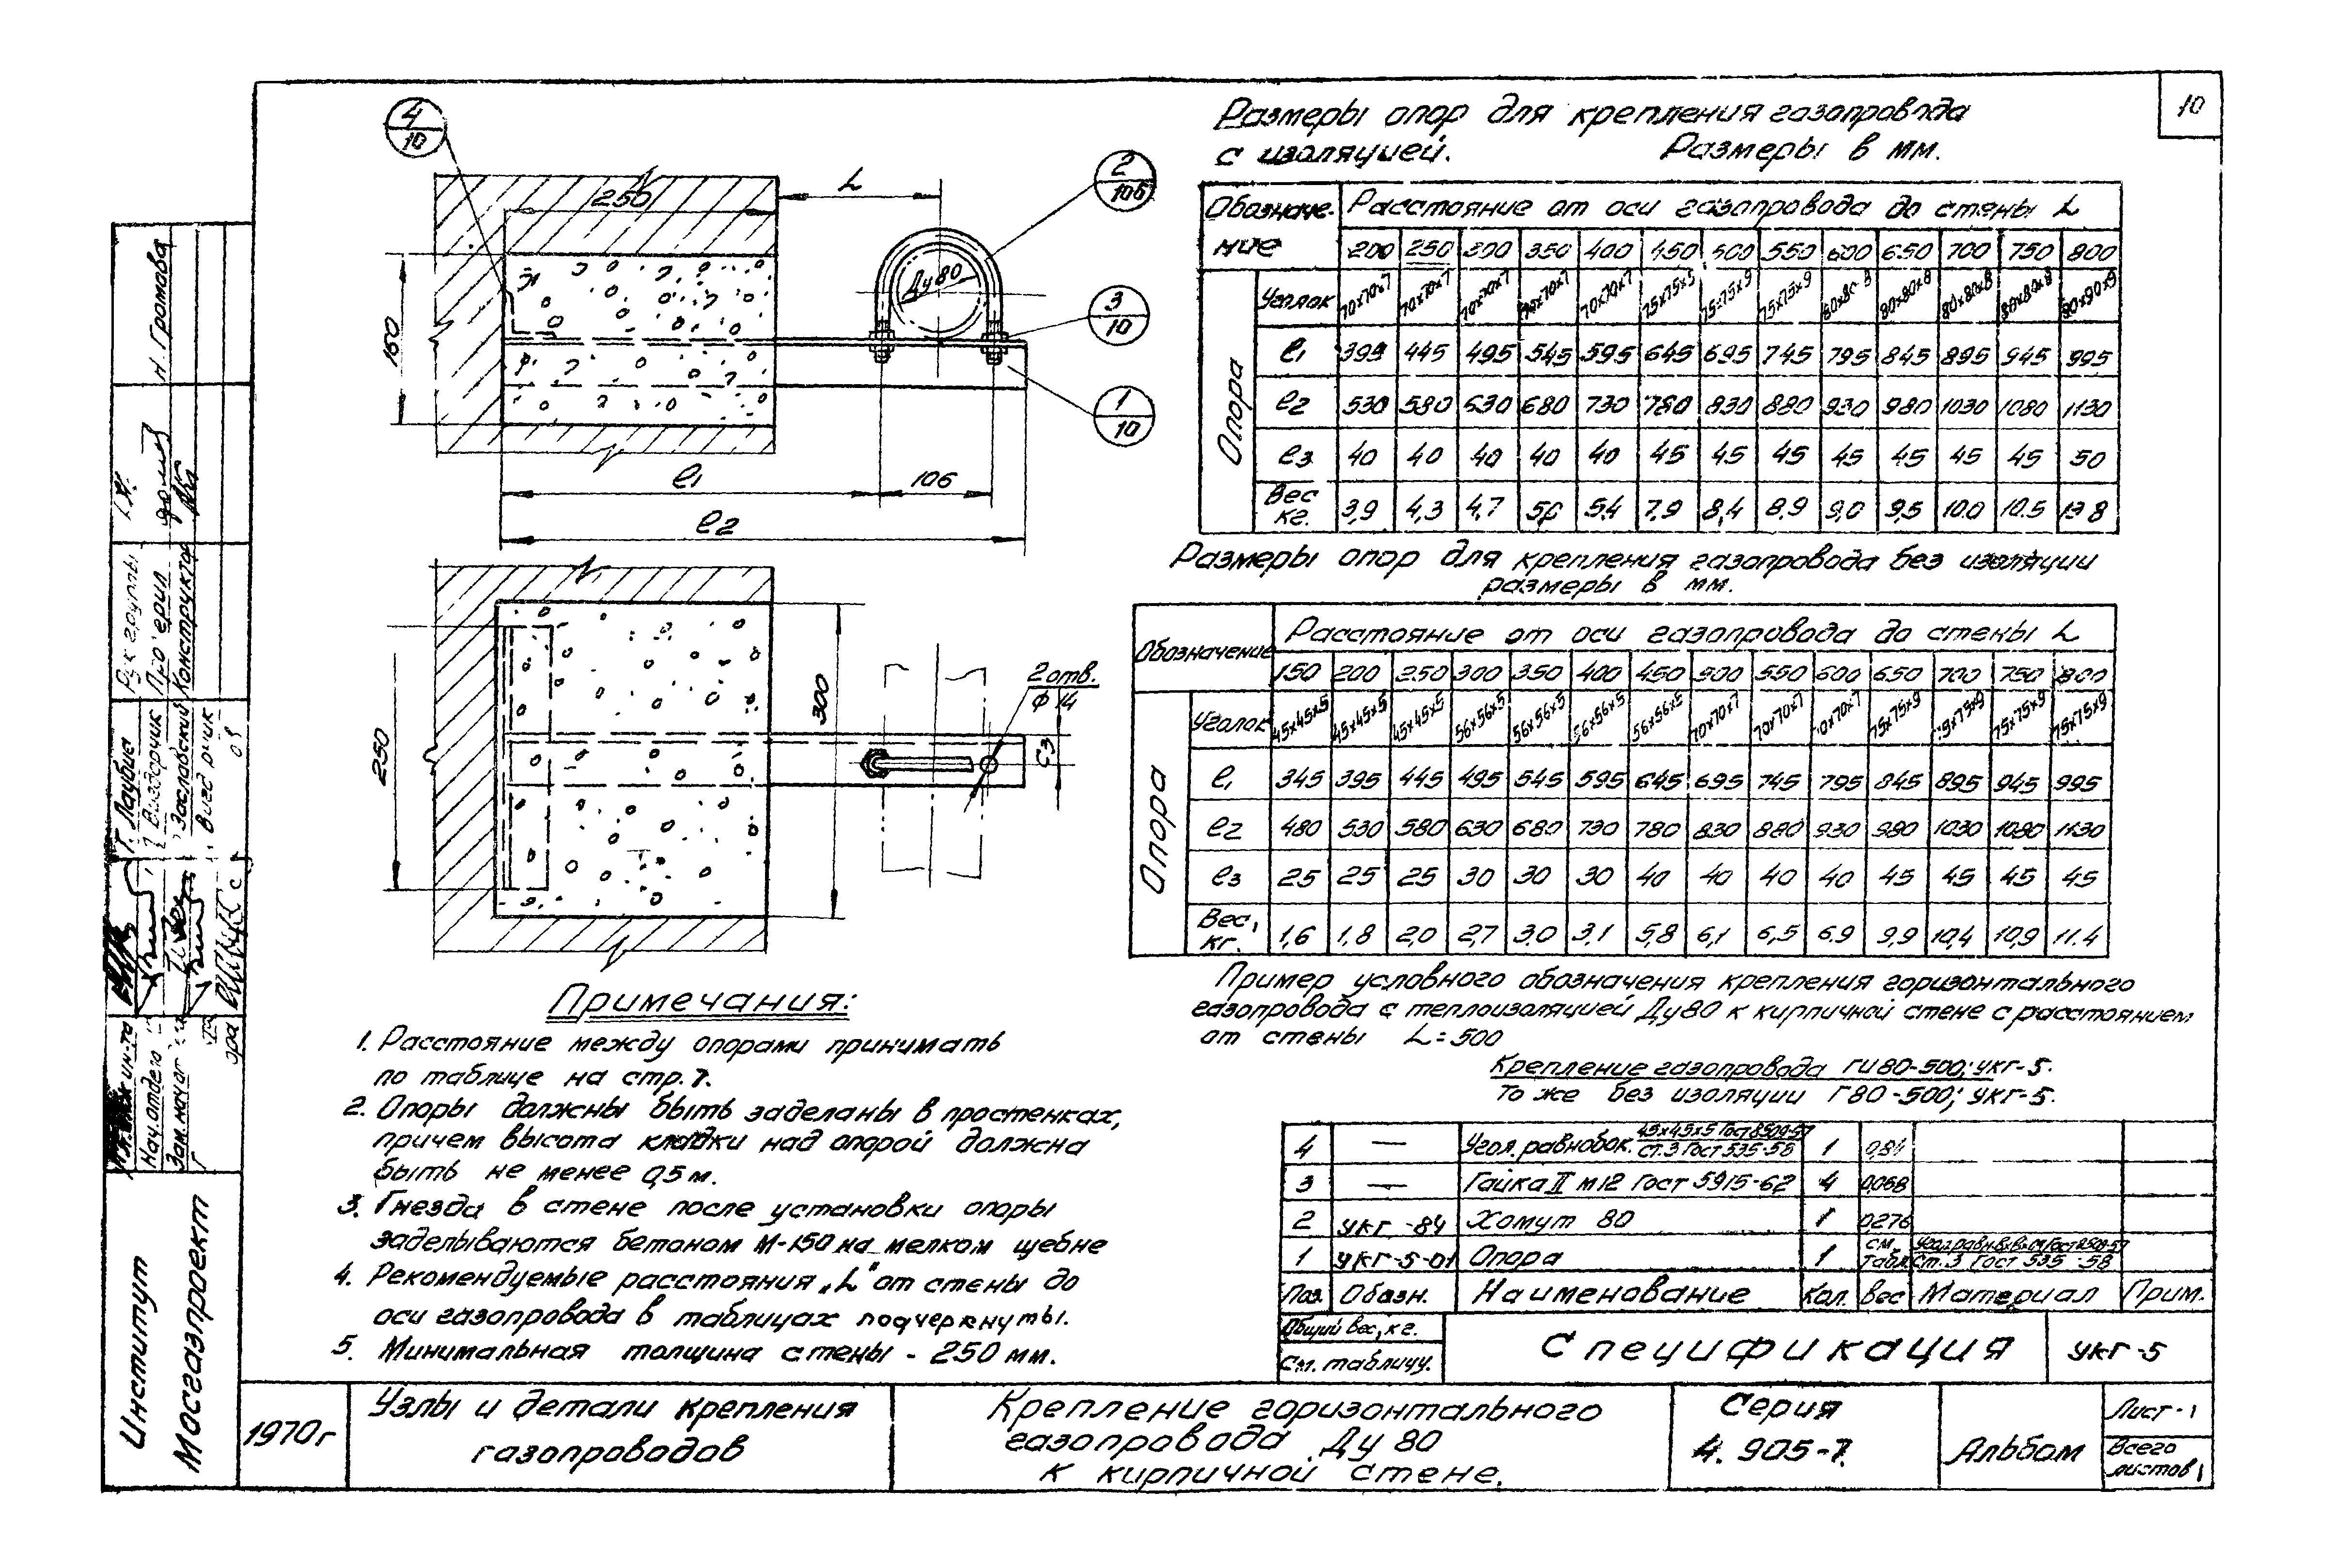 10
Размеры опор для крепления газопровода
с изоляцией. Размеры в мм.
Обозначе- Расстояние от оси газопровода до стены L
ние 200 250 300 350 400 450 500 550 600 650 700 750 800
Опора
Уголок 70х70х7 70х70х7 70х70х7 70х70х7 70х70х7 75х75х9 75х75х9 80х80х8 80х80х8 80х80х8 90х90х9
ℓ1 395 445 495 545 595 645 695 745 795 845 895 945 995
ℓ2 530 580 630 680 730 780 830 880 930 980 1030 1080 1130
ℓ3 40 40 40 40 40 45 45 45 45 45 45 45 50
Вес кг. 3,9 4,3 4,7 5,0 5,4 7,9 8,4 8,9 9,0 9,5 10.0 10.5 13 8
Размеры опор для крепления газопровода без изоляции
размеры в мм.
Обозначение Расстояние от оси газопровода до стены L
150 200 250 300 350 400 450 500 550 600 650 700 750 800
Опора
Уголок 45х45х5 45х45х5 45х45х5 56х56х5 56х56х5 56х56х5 56х56х5 70х70х7 70х70х7 70х70х7 75х75х9 75х75х9 75х75х9 75х75х9
ℓ1 345 395 445 495 545 595 645 695 745 795 845 895 945 995
ℓ2 480 530 580 630 680 730 780 830 880 930 980 1030 1080 1130
ℓ3 25 25 25 30 30 30 40 40 40 40 45 45 45 45
Вес, кг. 1,6 1,8 2,0 2,7 3.0 3,1 5,8 6,1 6,5 6.9 9,9 10,4 10,9 11.4
Пример условного обозначения крепления горизонтального
газопровода с теплоизоляцией Ду80 к кирпичной стене с расстоянием
от стены L=500
Крепление газопровода ГИ80-500; УКГ-5.
То же без изоляции Г80-500; УКГ-5.
4
10
250
L
2
106
Ду 80
3
10
160
1
10
ℓ1
106
ℓ2
2 отв.
ф 14
300
250
ℓ3
Примечания:
1. Расстояние между опорами принимать
по таблице на стр. 7.
2. Опоры должны быть заделаны в простенках,
причем высота кладки над опорой должна
быть не менее 0,5 м.
3. Гнезда в стене после установки опоры
заделываются бетоном М-150 на мелком щебне
4. Рекомендуемые расстояния „L" от стены до
оси газопровода в таблицах подчеркнуты.
5. Минимальная толщина стены - 250 мм.
4 — Угол. равнобок. 45х45х5 Гост 8509-57 Ст.3 Гост 535-58 1 0,84
3 — Гайка II М12 Гост 5915-62 4 0,068
2 УКГ-84 Хомут 80 1 0,276
1 УКГ-5-01 Опора 1 см. табл. Ст.3 Гост 535-58
Поз. Обозн. Наименование Кол. Вес Материал Прим.
Общий вес, кг.
См. таблицу.
Спецификация УКГ-5
1970г
Узлы и детали крепления
газопроводов
Крепление горизонтального
газопровода Ду 80
к кирпичной стене.
Серия
4.905-7
Альбом
Лист-1
Всего
листов 1
Институт
Мосгазпроект
Нач. отдела
Рук группы
Конструктор
Н. Громова
Заславский